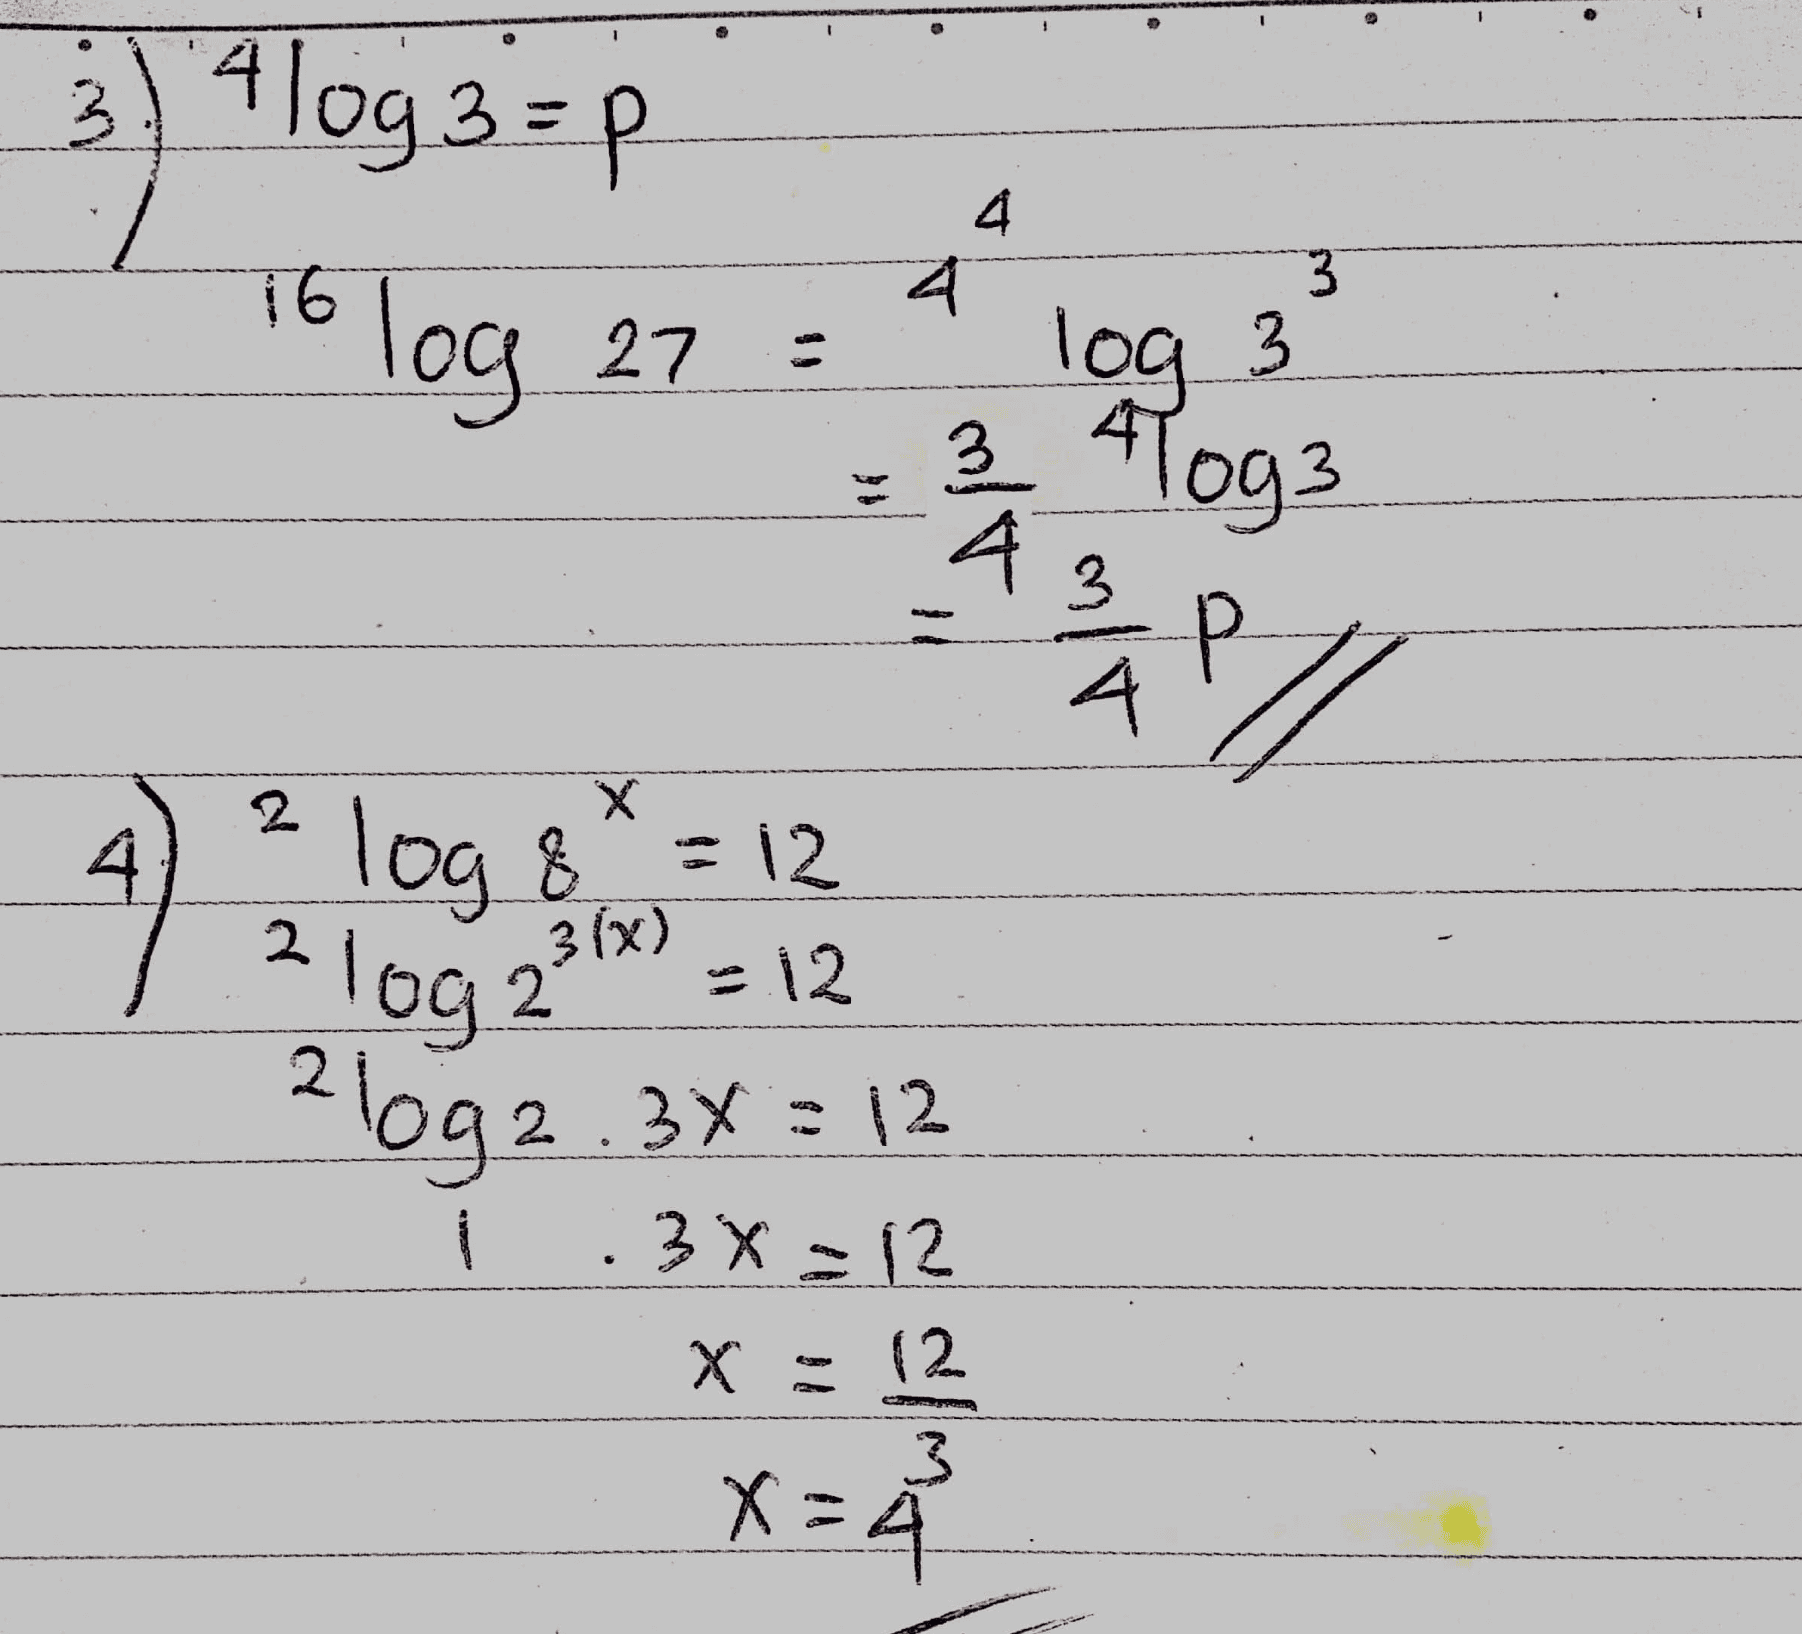 3) ⁴log 3 = p
¹⁶log 27 = 4⁴ log 3³
= 3/4 ⁴log 3
= 3/4 p //
4) ²log 8ˣ = 12
²log 2³⁽ˣ⁾ = 12
²log 2 . 3x = 12
1 . 3x = 12
x = 12/3
x = 4 //